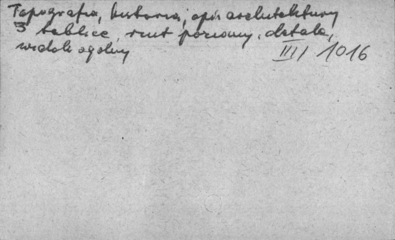 Topografia, historia, opis architektury
3 tablice, rzut poziomy, detale,
widok ogólny III 1016